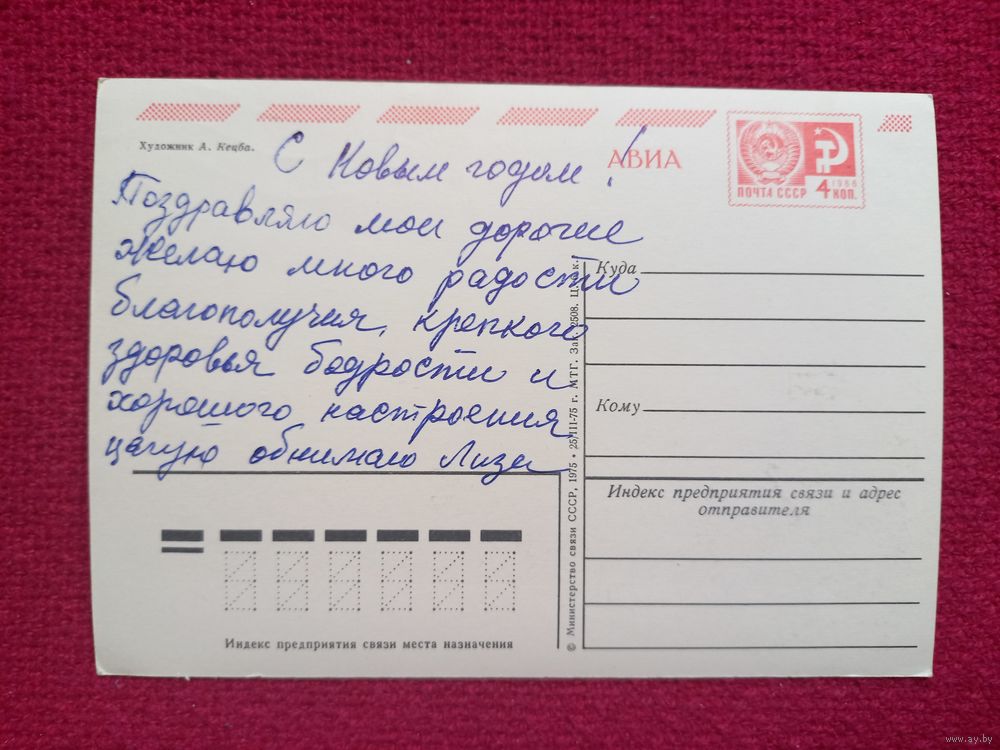 Художник А. Кецба.
С Новым годом!
АВИА
ПОЧТА СССР
1966
4 КОП.
Поздравляю мои дорогие
желаю много радости
благополучия, крепкого
здоровья бодрости и
хорошого настроения
целую обнимаю Лиза
Куда
Кому
Индекс предприятия связи и адрес
отправителя
Индекс предприятия связи места назначения
© Министерство связи СССР, 1975 • 25/III-75 г. МТГ. Зак. 2508. Ц. к.
www.ay.by